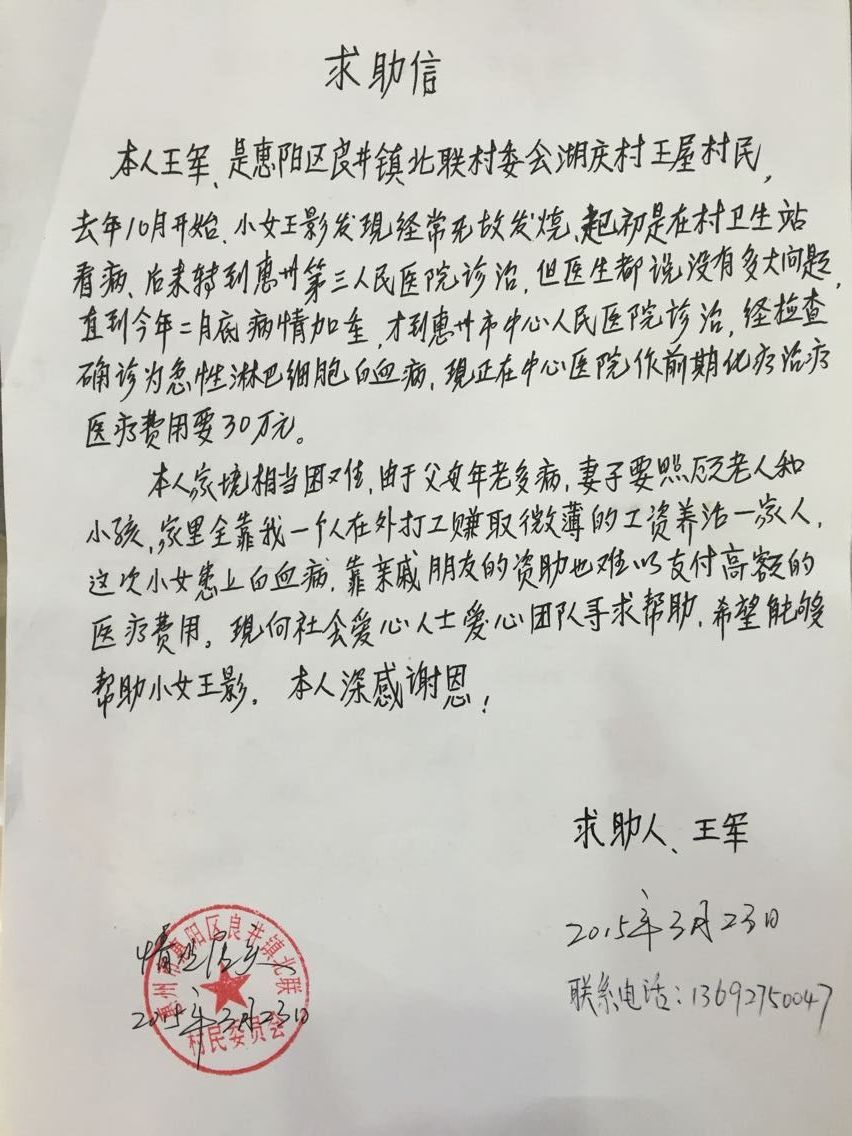 求助信
本人王军、是惠阳区良井镇北联村委会湖庆村王屋村民,
去年10月开始、小女王影发现经常无故发烧、起初是在村卫生站
看病、后来转到惠州第三人民医院诊治,但医生都说没有多大问题,
直到今年二月底病情加重,才到惠州市中心人民医院诊治,经检查
确诊为急性淋巴细胞白血病,现正在中心医院作前期化疗治疗
医疗费用要30万元。
本人家境相当困难,由于父母年老多病,妻子要照顾老人和
小孩,家里全靠我一个人在外打工赚取微薄的工资养活一家人,
这次小女患上白血病,靠亲戚朋友的资助也难以支付高额的
医疗费用。现向社会爱心人士爱心团队寻求帮助,希望能够
帮助小女王影。本人深感谢恩!
求助人、王军
2015年3月23日
联系电话:13692750047
情况属实
2015年3月23日
惠州市惠阳区良井镇北联
村民委员会